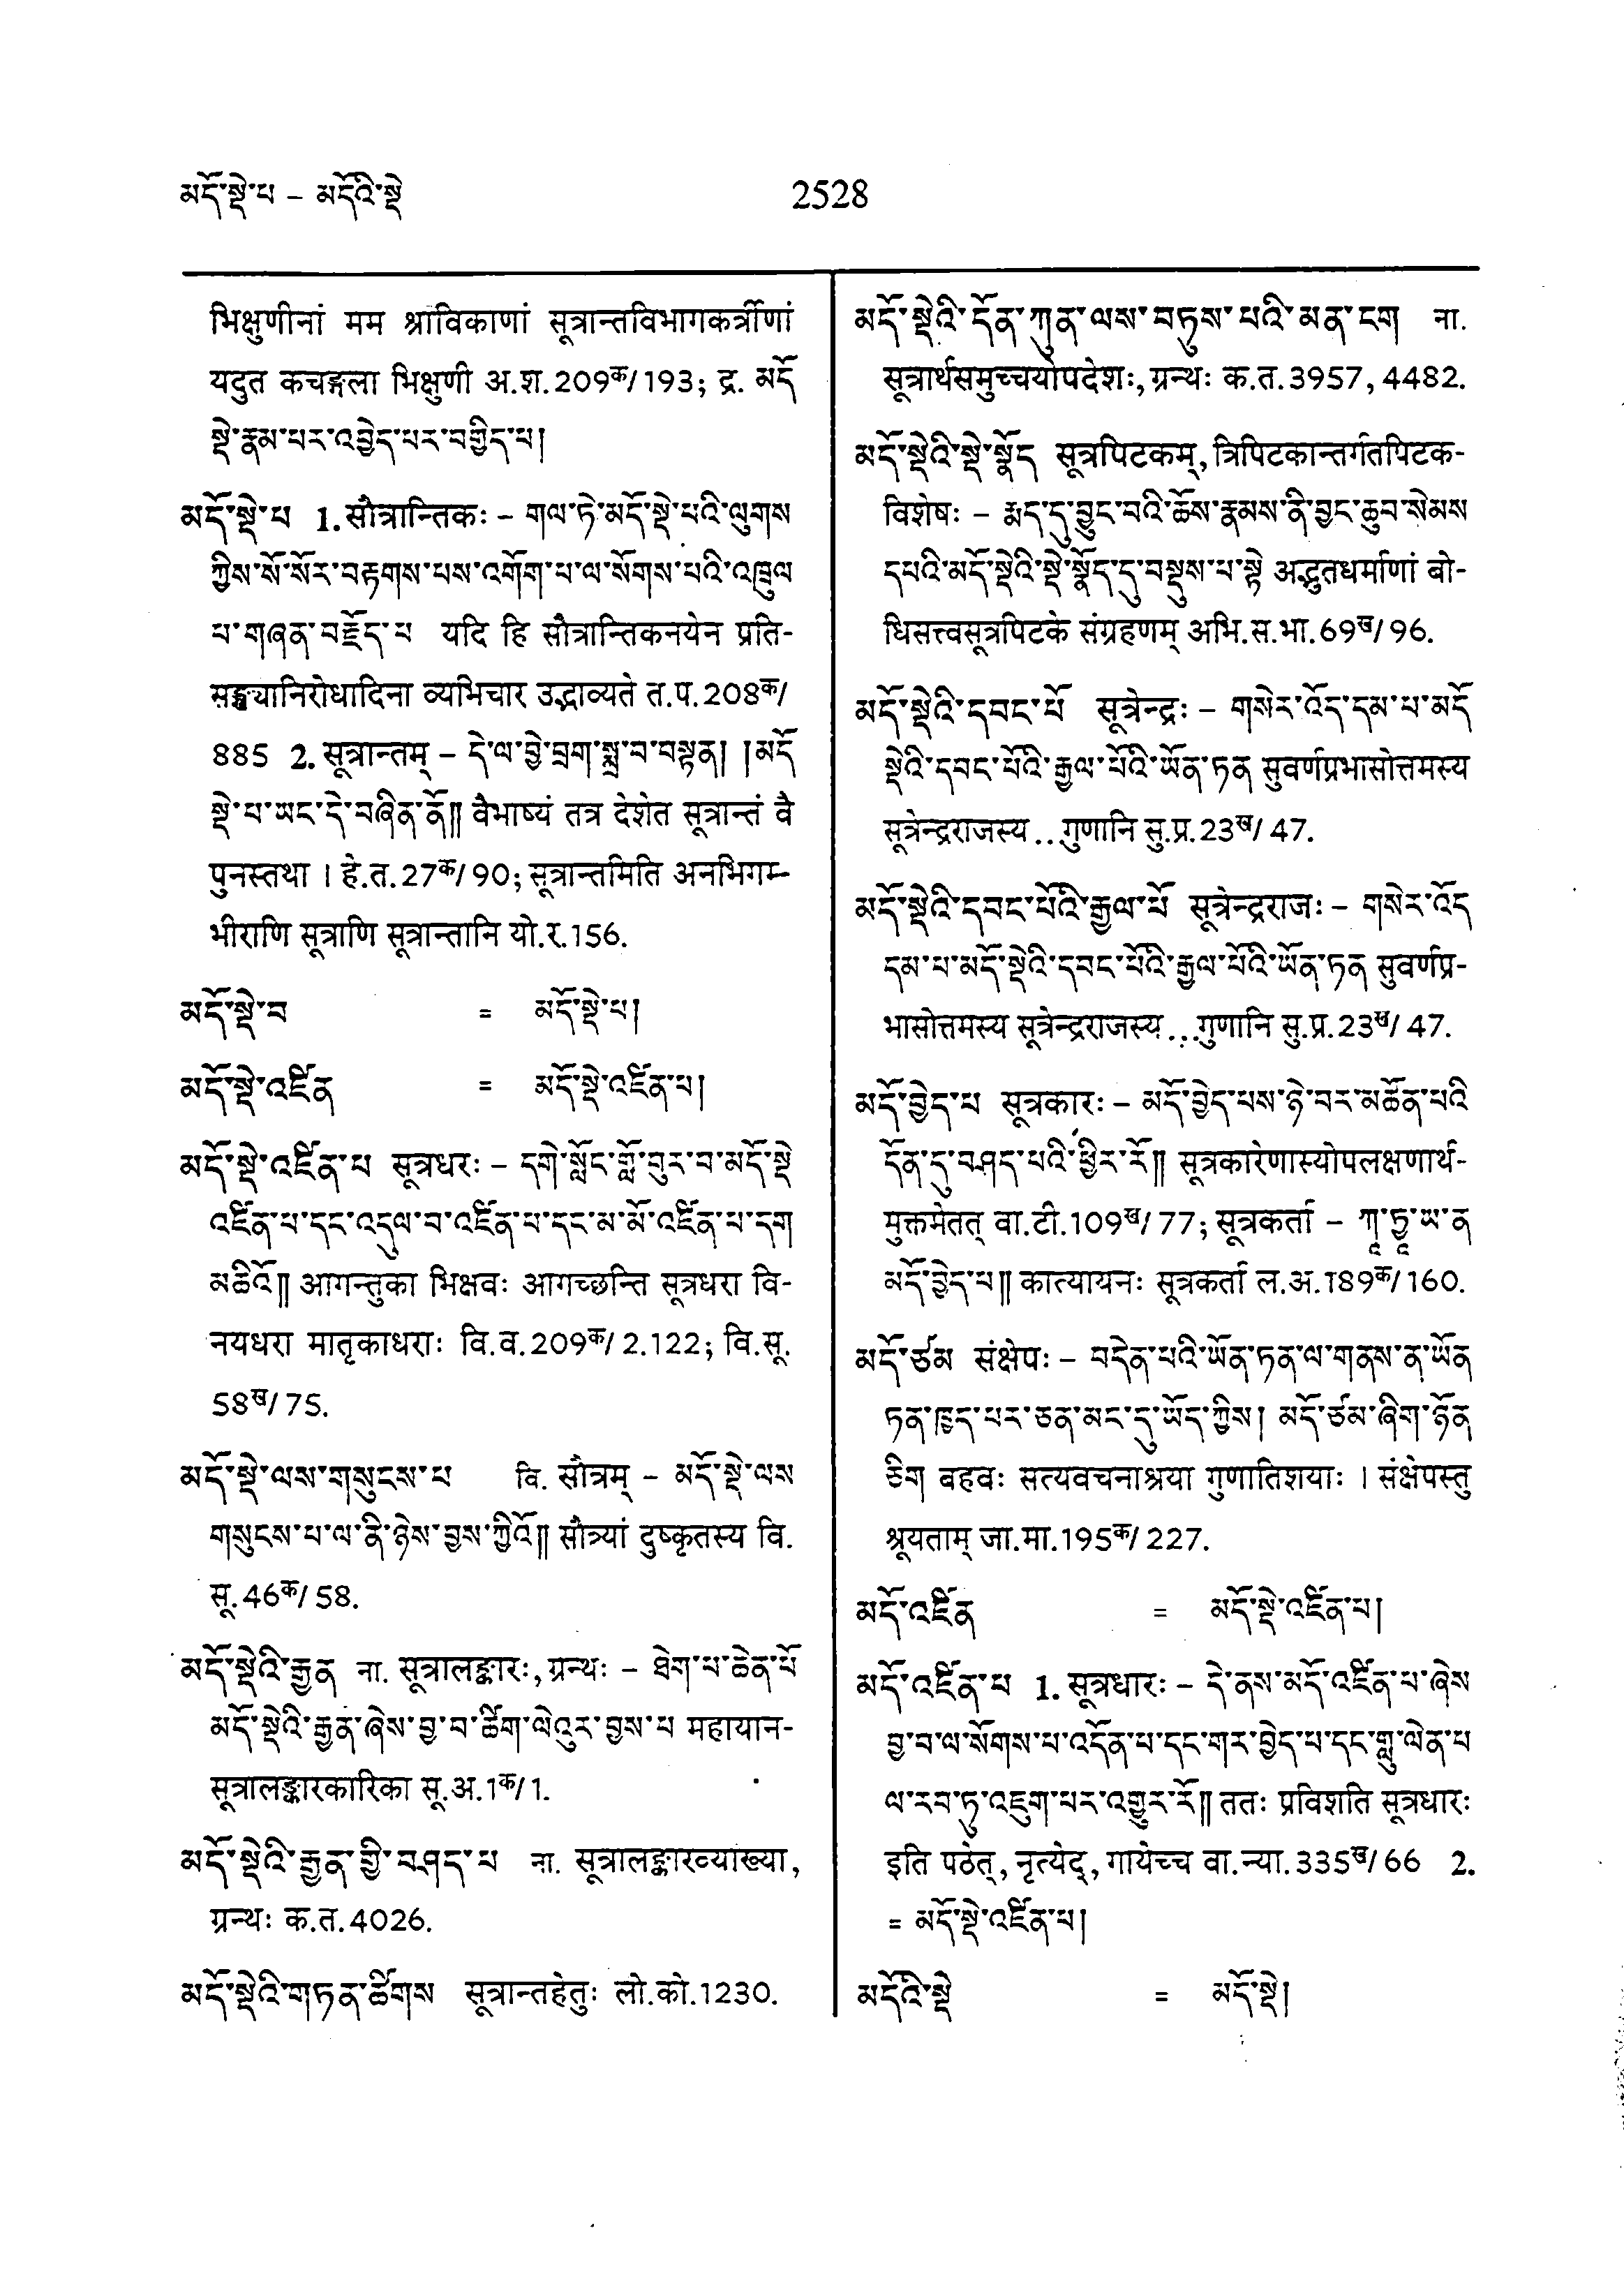 མདོ་སྡེ་པ – མདོའི་སྡེ
2528
भिक्षुणीनां मम श्राविकाणां सूत्रान्तविभागकर्त्रीणां
यदुत कचङ्गला भिक्षुणी अ.श.209क/193; द्र. མདོ
སྡེ་རྣམ་པར་འབྱེད་པར་བགྱིད་པ།
མདོ་སྡེ་པ 1. सौत्रान्तिकः – གལ་ཏེ་མདོ་སྡེ་པའི་ལུགས
ཀྱིས་སོ་སོར་བརྟགས་པས་འགོག་པ་ལ་སོགས་པའི་འཁྲུལ
པ་གཞན་བརྗོད་པ यदि हि सौत्रान्तिकनयेन प्रति-
सङ्ख्यानिरोधादिना व्यभिचार उद्भाव्यते त.प.208क/
885 2. सूत्रान्तम् – དེ་ལ་བྱེ་བྲག་སྨྲ་བ་བསྟན། །མདོ
སྡེ་པ་ཡང་དེ་བཞིན་ནོ།། वैभाष्यं तत्र देशेत सूत्रान्तं वै
पुनस्तथा । हे.त.27क/90; सूत्रान्तमिति अनभिगम्-
भीराणि सूत्राणि सूत्रान्तानि यो.र.156.
མདོ་སྡེ་བ = མདོ་སྡེ་པ།
མདོ་སྡེ་འཛིན = མདོ་སྡེ་འཛིན་པ།
མདོ་སྡེ་འཛིན་པ सूत्रधरः – དགེ་སློང་གློ་བུར་བ་མདོ་སྡེ
འཛིན་པ་དང་འདུལ་བ་འཛིན་པ་དང་མ་མོ་འཛིན་པ་དག
མཆིའོ།། आगन्तुका भिक्षवः आगच्छन्ति सूत्रधरा वि-
नयधरा मातृकाधराः वि.व.209क/2.122; वि.सू.
58ख/75.
མདོ་སྡེ་ལས་གསུངས་པ वि. सौत्रम् – མདོ་སྡེ་ལས
གསུངས་པ་ལ་ནི་ཉེས་བྱས་ཀྱིའོ།། सौत्र्यां दुष्कृतस्य वि.
सू.46क/58.
མདོ་སྡེའི་རྒྱན ना. सूत्रालङ्कारः, ग्रन्थः – ཐེག་པ་ཆེན་པོ
མདོ་སྡེའི་རྒྱན་ཞེས་བྱ་བ་ཚིག་ལེའུར་བྱས་པ महायान-
सूत्रालङ्कारकारिका सू.अ.1क/1.
མདོ་སྡེའི་རྒྱན་གྱི་བཤད་པ ना. सूत्रालङ्कारव्याख्या,
ग्रन्थः क.त.4026.
མདོ་སྡེའི་གཏན་ཚིགས सूत्रान्तहेतुः लो.को.1230.
མདོ་སྡེའི་དོན་ཀུན་ལས་བཏུས་པའི་མན་ངག ना.
सूत्रार्थसमुच्चयोपदेशः, ग्रन्थः क.त.3957, 4482.
མདོ་སྡེའི་སྡེ་སྣོད सूत्रपिटकम्, त्रिपिटकान्तर्गतपिटक-
विशेषः – རྨད་དུ་བྱུང་བའི་ཆོས་རྣམས་ནི་བྱང་ཆུབ་སེམས
དཔའི་མདོ་སྡེའི་སྡེ་སྣོད་དུ་བསྡུས་པ་སྟེ अद्भुतधर्माणां बो-
धिसत्त्वसूत्रपिटके संग्रहणम् अभि.स.भा.69ख/96.
མདོ་སྡེའི་དབང་པོ सूत्रेन्द्रः – གསེར་འོད་དམ་པ་མདོ
སྡེའི་དབང་པོའི་རྒྱལ་པོའི་ཡོན་ཏན सुवर्णप्रभासोत्तमस्य
सूत्रेन्द्रराजस्य...गुणानि सु.प्र.23ख/47.
མདོ་སྡེའི་དབང་པོའི་རྒྱལ་པོ सूत्रेन्द्रराजः – གསེར་འོད
དམ་པ་མདོ་སྡེའི་དབང་པོའི་རྒྱལ་པོའི་ཡོན་ཏན सुवर्णप्र-
भासोत्तमस्य सूत्रेन्द्रराजस्य...गुणानि सु.प्र.23ख/47.
མདོ་བྱེད་པ सूत्रकारः – མདོ་བྱེད་པས་ཉེ་བར་མཚོན་པའི
དོན་དུ་བཤད་པའི་ཕྱིར་རོ།། सूत्रकारेणास्योपलक्षणार्थ-
मुक्तमेतत् वा.टी.109ख/77; सूत्रकर्ता – ཀཱ་ཏྱཱ་ཡ་ན
མདོ་བྱེད་པ།། कात्यायनः सूत्रकर्ता ल.अ.189क/160.
མདོ་ཙམ संक्षेपः – བདེན་པའི་ཡོན་ཏན་ལ་གནས་ན་ཡོན
ཏན་ཁྱད་པར་ཅན་མང་དུ་ཡོད་ཀྱིས། མདོ་ཙམ་ཞིག་ཉོན
ཅིག बहवः सत्यवचनाश्रया गुणातिशयाः । संक्षेपस्तु
श्रूयताम् जा.मा.195क/227.
མདོ་འཛིན = མདོ་སྡེ་འཛིན་པ།
མདོ་འཛིན་པ 1. सूत्रधारः – དེ་ནས་མདོ་འཛིན་པ་ཞེས
བྱ་བ་ལ་སོགས་པ་འདོན་པ་དང་གར་བྱེད་པ་དང་གླུ་ལེན་པ
ལ་རབ་ཏུ་འཇུག་པར་འགྱུར་རོ།། ततः प्रविशति सूत्रधारः
इति पठेत्, नृत्येद्, गायेच्च वा.न्या.335ख/66 2.
= མདོ་སྡེ་འཛིན་པ།
མདོའི་སྡེ = མདོ་སྡེ།